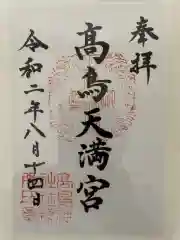 奉拝
高鳥天満宮
令和二年八月十四日